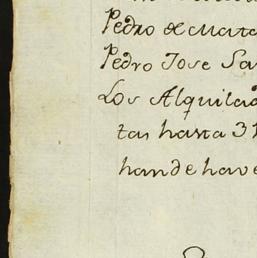 Pedro de Mata
Pedro Jose Sa
Los Alquila
tas hasta 31
han de have